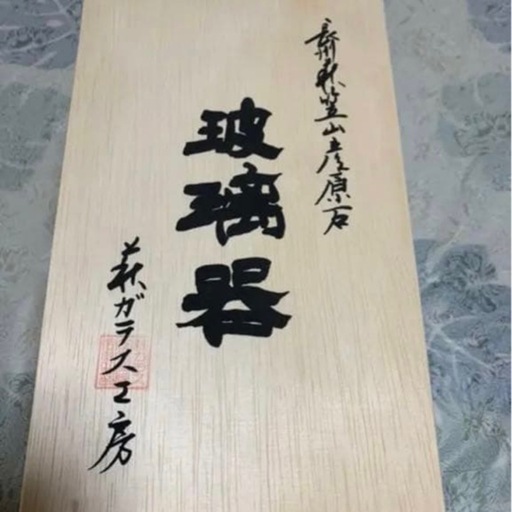 長州萩笠山産原石
玻璃器
萩ガラス工房